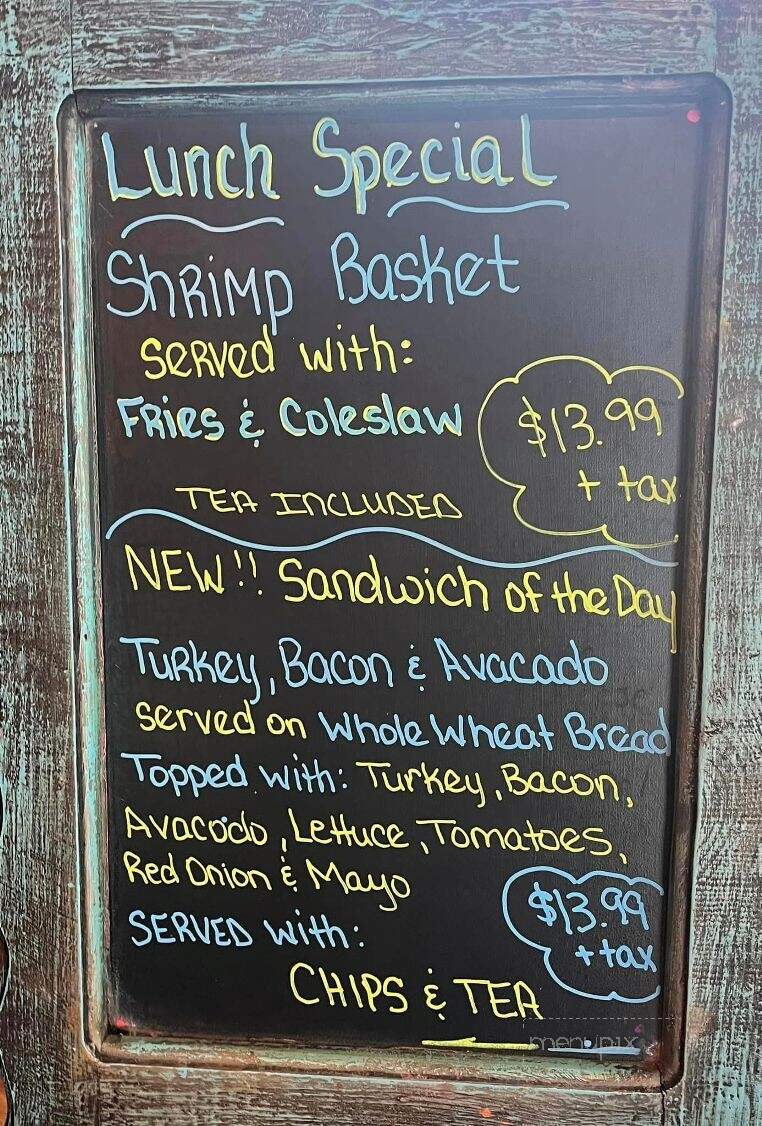 Lunch Special
Shrimp Basket
served with:
Fries & Coleslaw
$13.99
+ tax
TEA INCLUDED
NEW!! Sandwich of the Day
Turkey, Bacon & Avacado
served on Whole Wheat Bread
Topped with: Turkey, Bacon,
Avacodo, Lettuce, Tomatoes,
Red Onion & Mayo
$13.99
+ tax
SERVED with:
CHIPS & TEA
menupix